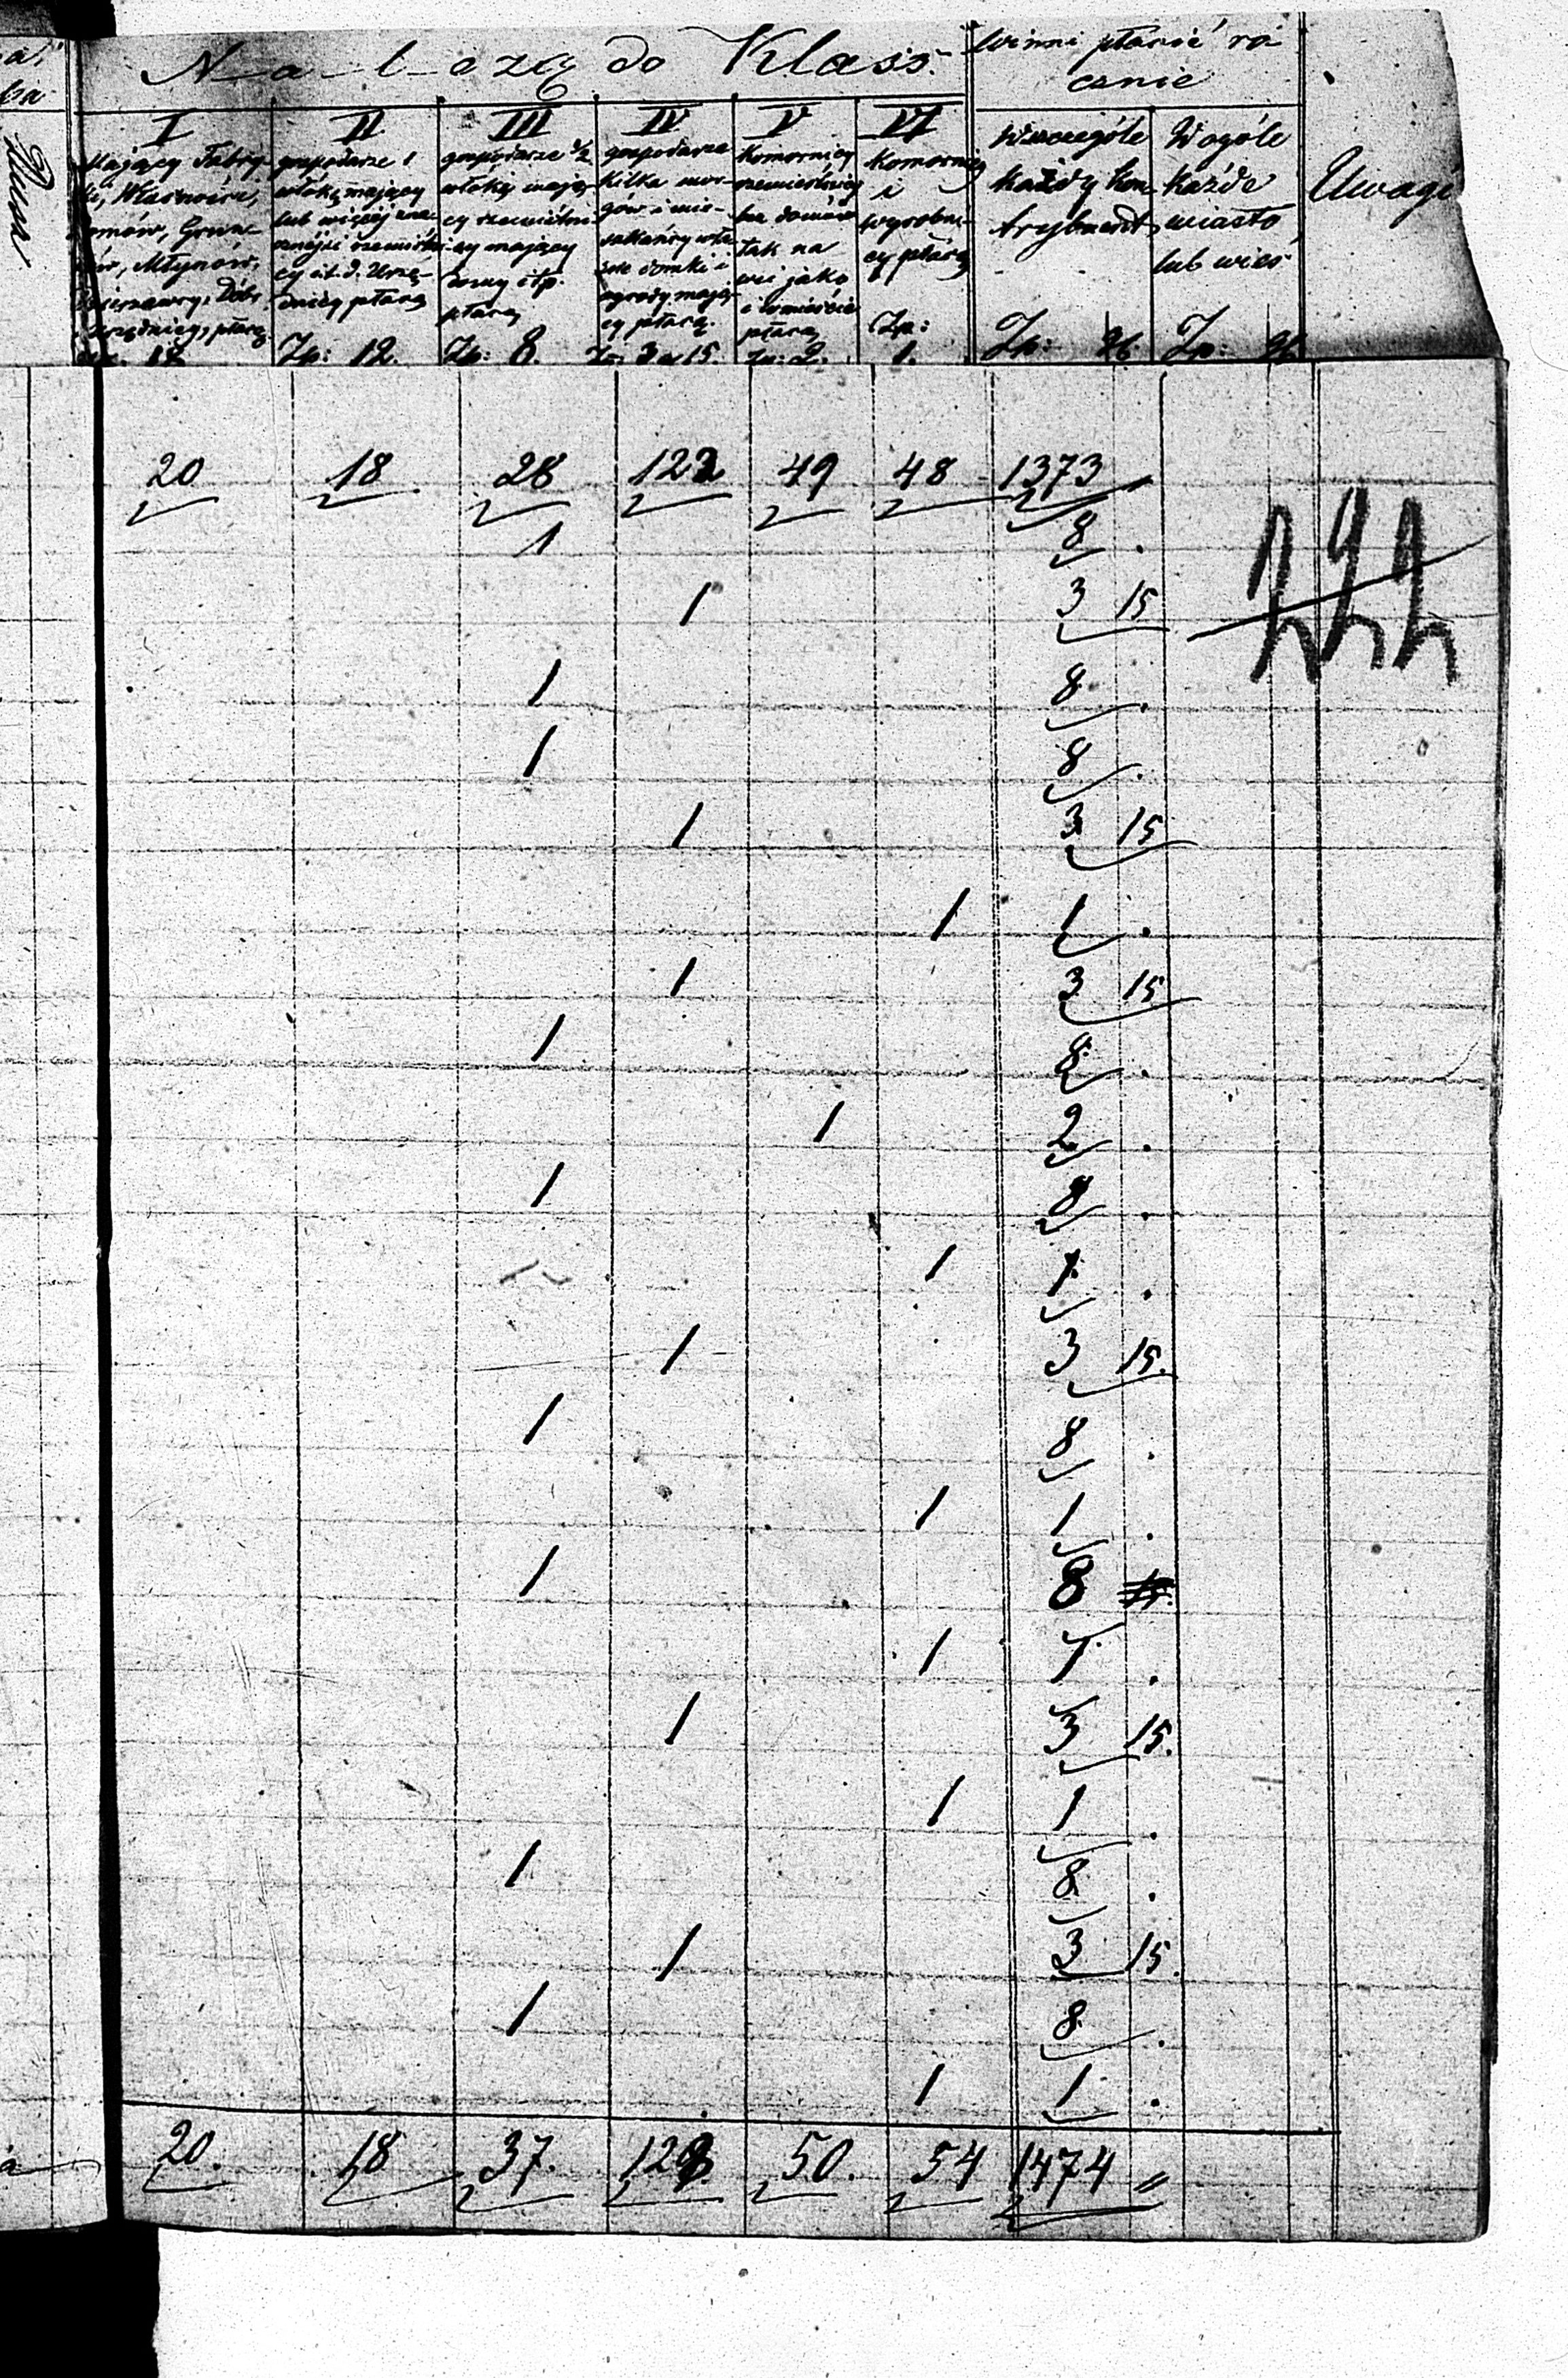 Należą do Klass. Winni płacić ro
cznie
I II III IV V VI
Mający Fabry-
ki, Własności,
Domów, Grun-
tów, Młynów,
Dzierżawcy, Dóbr
Urzędnicy, płacą
gospodarze 1
włókę mający
lub więcej zna-
czniejsi rzemieślni
cy it. d. Urzę-
dnicy płacą
Zp: 12.
gospodarze 1/2
włóki mają-
cy rzemieślni
cy mający
domy itp.
płacą
Zp: 8.
gospodarze
kilka mor-
gów i mie-
szkańcy wła
sne domki i
ogrody mają-
cy płacą.
Zp: 3 gr 15.
Komornicy
rzemieślnicy
bez domów
tak na
wsi jako
i w mieście
płacą
Zp: 2.
Komornicy
i
wyrobni-
cy płacą
Zp:
1.
Wszczególe
każdy Kon
trybuent
Zp: gr.
Wogóle
każde
miasto
lub wieś
Zp: gr.
Uwagi
20 18 28 122 49 48 1373 "
222
1 8 .
1 3 15
1 8 .
1 8 .
1 3 15
1 1 .
1 3 15
1 8 .
1 2 .
1 8 .
1 1 .
1 3 15.
1 8 .
1 1 .
1 8
1 1 .
1 3 15.
1 1 .
1 8 .
1 3 15.
1 8 .
1 1 .
20. 18 37. 128. 50. 54 1474 "